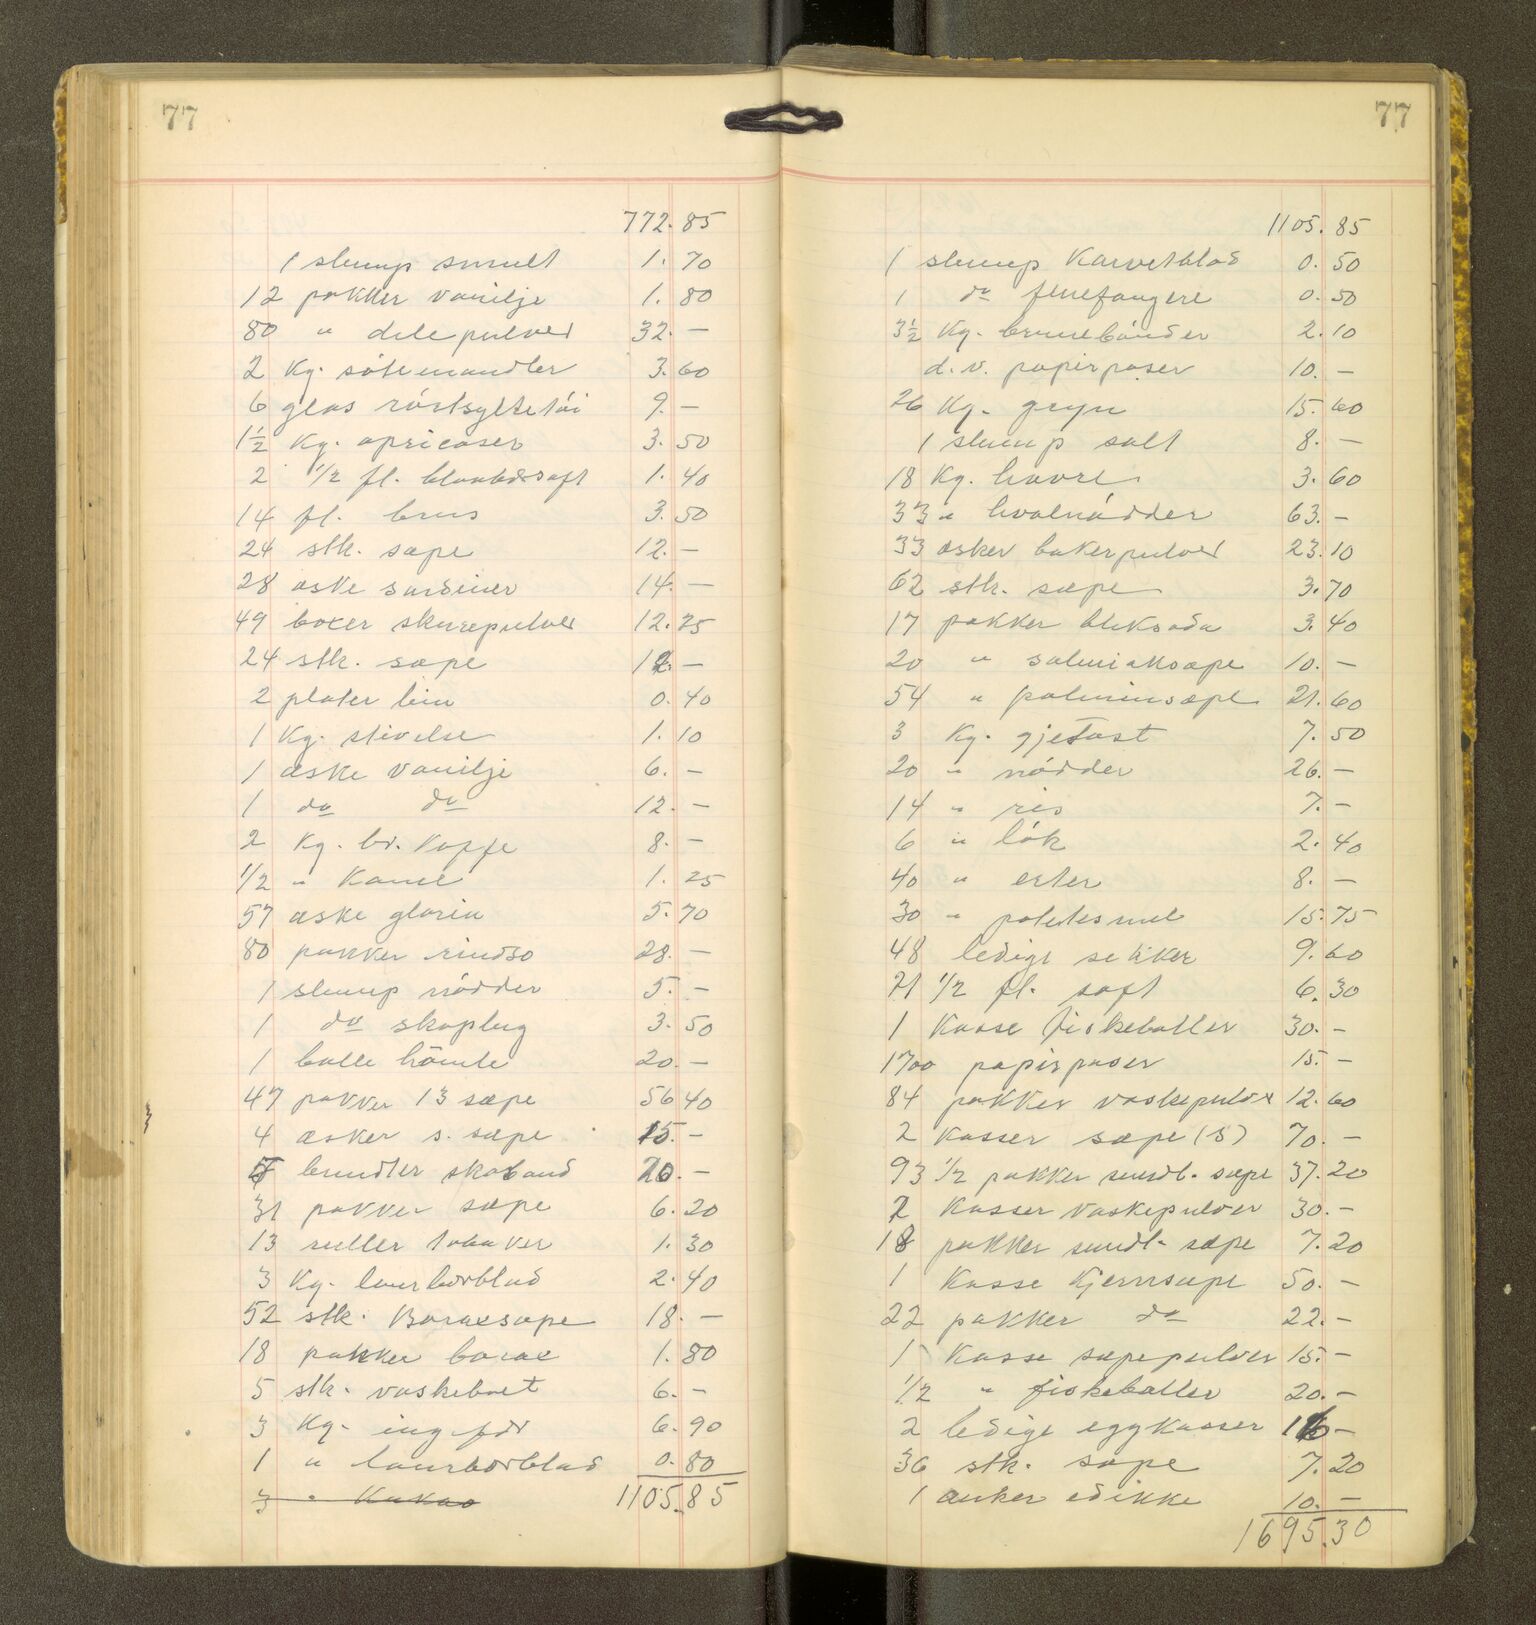 77
772.85
1 slump smult 1.70
12 pakker vanilje 1.80
80 " dilepulver 32.-
2 Kg. sötemandler 3.60
6 glas rörtsyltetöi 9.-
1½ Kg. apricoser 3.50
2 1/2 fl. blaabærsaft 1.40
14 fl. brus 3.50
24 stk. sæpe 12.-
28 æske sardiner 14.-
49 boxer skurepulver 12.25
24 stk. sæpe 12.-
2 plater lim 0.40
1 Kg. stivelse 1.10
1 æske vanilje 6.-
1 do do 12.-
2 Kg. br. Kaffe 8.-
1/2 " Kanel 1.25
57 æske gloria 5.70
80 pakker rindso 28.-
1 slump nödder 5.-
1 do skoplug 3.50
1 balle hömle 20.-
47 pakker 13 sæpe 56.40
4 æsker s. sæpe 15.-
5 bundter skoband 20.-
31 pakker sæpe 6.20
13 ruller tobaker 1.30
3 Kg. laurbærblad 2.40
52 stk. Boraxsæpe 18.-
18 pakker borax 1.80
5 stk. vaskebret 6.-
3 Kg. ingefær 6.90
1 " laurbærblad 0.80
3 " Kakao
1105.85
77
1105.85
1 slump Karvetblad 0.50
1 do fluefangere 0.50
3½ Kg. brunebönder 2.10
d.v. papirposer 10.-
26 Kg. gryn 15.60
1 slump salt 8.-
18 Kg. havre 3.60
33 " hvalnödder 63.-
33 æsker bakerpulver 23.10
62 stk. sæpe 3.70
17 pakker bleksoda 3.40
20 " salmiaksæpe 10.-
54 " palminsæpe 21.60
3 Kg. gjetost 7.50
20 " nödder 26.-
14 " ris 7.-
6 " lök 2.40
40 " erter 8.-
30 " potetesmel 15.75
48 ledige sekker 9.60
21 1/2 fl. saft 6.30
1 Kasse fiskeboller 30.-
1700 papirposer 15.-
84 pakker vaskepulver 12.60
2 Kasser sæpe (S) 70.-
93 1/2 pakker sundl. sæpe 37.20
2 Kasser vaskepulver 30.-
18 pakker sundl. sæpe 7.20
1 Kasse Kjernsæpe 50.-
22 pakker do 22.-
1 Kasse sæpepulver 15.-
1/2 " fiskeboller 20.-
2 ledige eggkasser 16-
36 stk. sæpe 7.20
1 anker edikke 10.-
1695.30